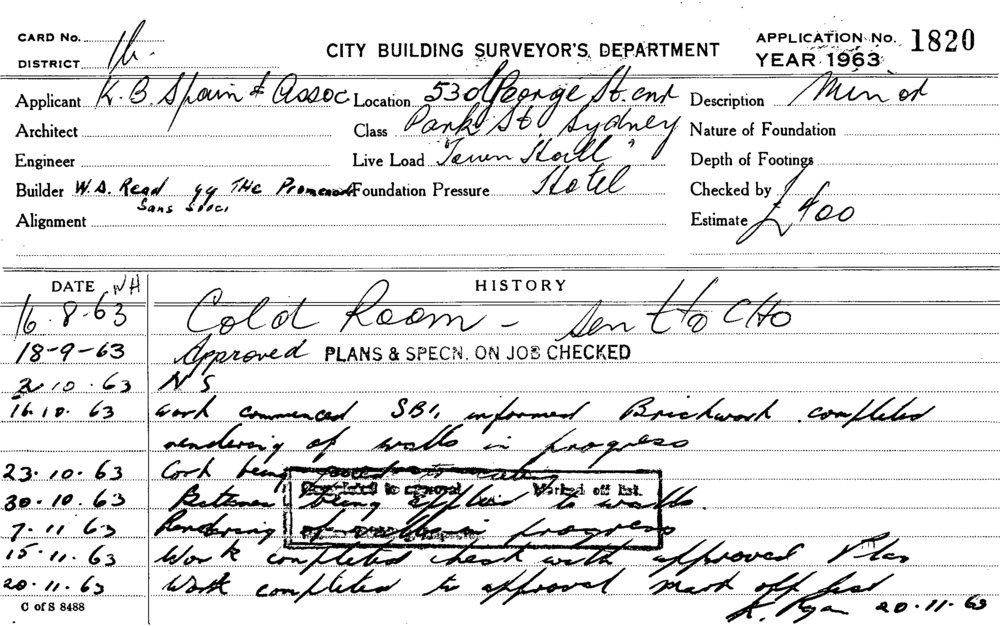 CARD No.
DISTRICT
CITY BUILDING SURVEYOR'S DEPARTMENT
APPLICATION No. 1820
YEAR 1963
Applicant K. B. Spain & Assoc Location 530 George St. cnr Description Minor
Architect Class Park St. Sydney Nature of Foundation
Engineer Live Load "Town Hall" Depth of Footings
Builder W. A. Read 99 THE Promenade Foundation Pressure Hotel Checked by
Sans Souci
Alignment Estimate £400
DATE NH HISTORY
16.8.63 Cold Room - Sent to CHO
18-9-63 Approved PLANS & SPECN. ON JOB CHECKED
2.10.63 NS
16.10.63 Work commenced SBI, informed Brickwork completed
rendering of walls in progress
23.10.63 Cork being to
30.10.63 being applied to walls.
Completed to approval Marked off list.
7.11.63 Rendering of in progress
15.11.63 Work completed check with approved Plan
20.11.63 Work completed to approval mark off list
C of S 8488
K. Ryan 20.11.63